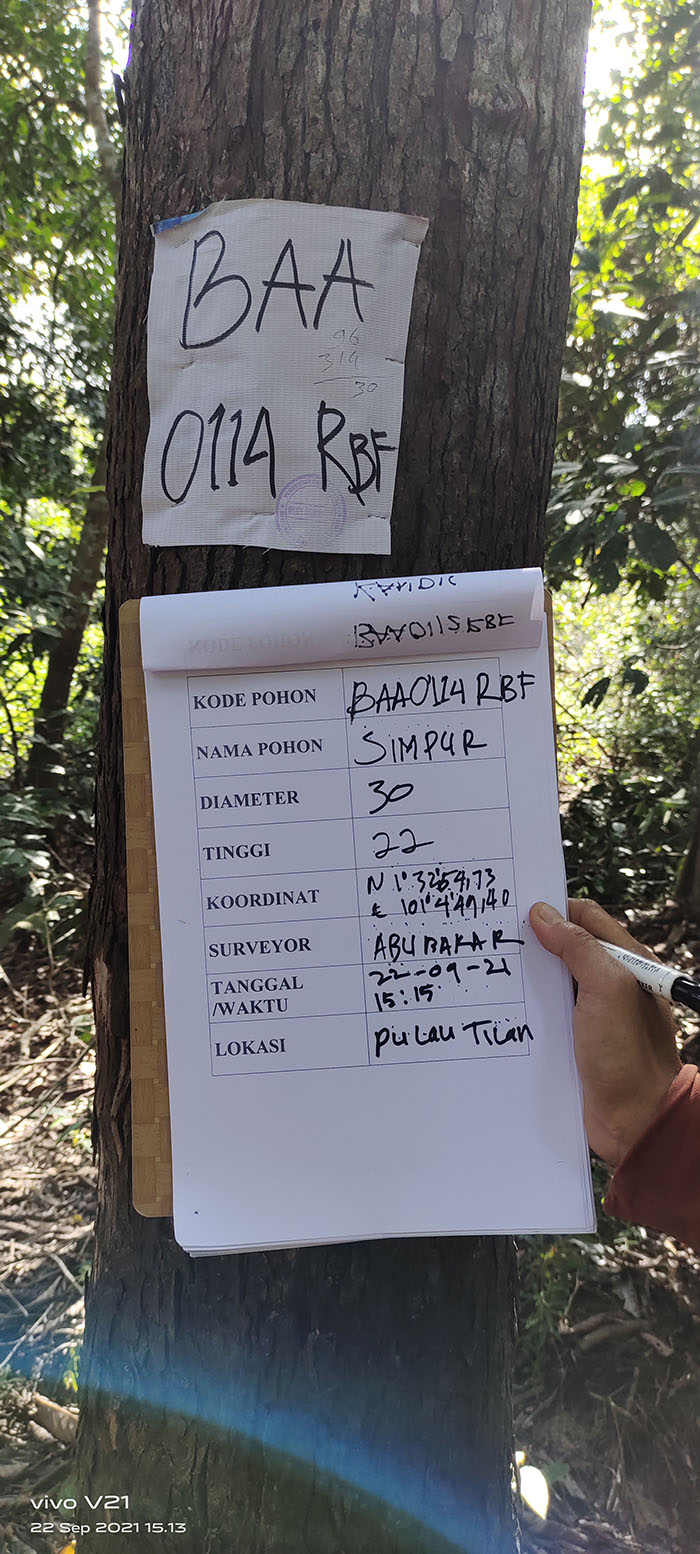 BAA
96
319
30
0114 RBF
BAA0115 RBF
KODE POHON BAA0114 RBF
NAMA POHON SIMPUR
DIAMETER 30
TINGGI 22
KOORDINAT N 1°32'54,73
E 101°4'49,40
SURVEYOR ABU BAKAR
TANGGAL 22-09-21
/WAKTU 15:15
LOKASI PULAU TILAN
vivo V21
22 Sep 2021 15.13